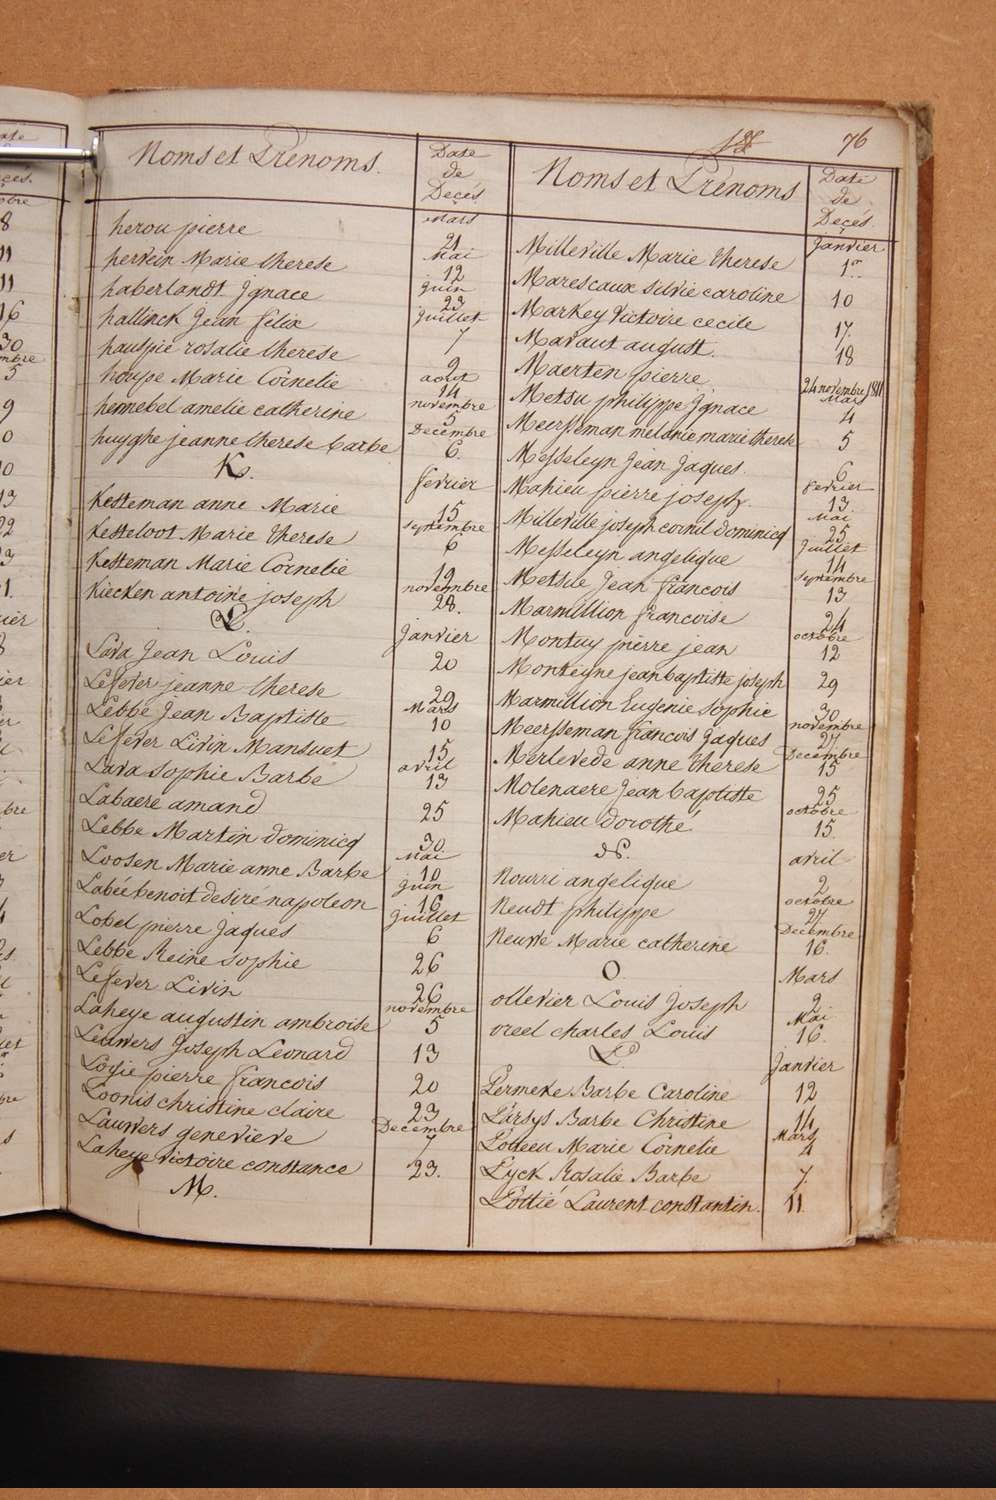 76
Noms et Prénoms.
Date
de
Décès
Mars
herou pierre 21
Mai
hervein Marie therese 12
juin
haberlandt Ignace 23
juillet
hallinck Jean felix 7
hauspie rosalie therese 9
aout
houpe Marie Cornelie 14
novembre
hennebel amelie catherine 5
Decembre
huyghe jeanne therese barbe 6.
K.
fevrier
Kesteman anne Marie 15
septembre
Kesteloot Marie therese 6
Kesteman Marie Cornelie 19
novembre
Kiecken antoine joseph 28.
L.
Janvier
Lava Jean Louis 20
Lefever jeanne therese 29
Mars
Lebbe Jean Baptiste 10
Lefever Livin Mansuet 15
avril
Lava Sophie Barbe 13
Labaere amand 25
Lebbe Martin dominicq 30
Mai
Loosen Marie anne Barbe 10
juin
Labée benoit desiré napoleon 16
juillet
Lobel pierre jaques 6
Lebbe Reine Sophie 26
Lefever Livin 26
novembre
Laheye augustin ambroise 5
Leuwers Joseph Leonard 13
Logie pierre francois 20
Loonis christine claire 23
Decembre
Lauwers genevieve 7
Laheye victoire constance 23.
M.
Noms et Prénoms
Date
de
Décès.
Janvier
Milleville Marie therese 1er
Marescaux silvie caroline 10
Markey Victoire cecile 17.
Mavaut august. 18
Maerten pierre 24 novembre 1811
Mars
Metsu philippe Ignace 4
Meersseman melanie marie therese 5
Messeleyn Jean Jaques. 6
fevrier
Mahieu pierre joseph. 13
Mai
Milleville joseph cornil dominicq 25
Juillet
Messeleyn angelique 14
Septembre
Metsue Jean francois 13
Marmillion francoise 24
octobre
Montuy pierre jean 12
Monteigne jean baptiste joseph 29
Marmillion Eugenie Sophie 30
novembre
Meersseman francois Jaques 27
Decembre
Merlevede anne therese 15
Molenaere Jean baptiste 25
octobre
Mahieu dorothé 15
N.
avril
Nourri angelique 2
octobre
Neudt philippe 27
Decembre
Neuve Marie catherine 16.
O
Mars
ollevier Louis Joseph 2
Mai
oreel charles Louis 16.
P.
Janvier
Permeke Barbe Caroline 12
Parsys Barbe Christine 14
Mars
Marie Cornelie 4
Pyck Rosalie Barbe 7.
Pottié Laurent constantin. 11